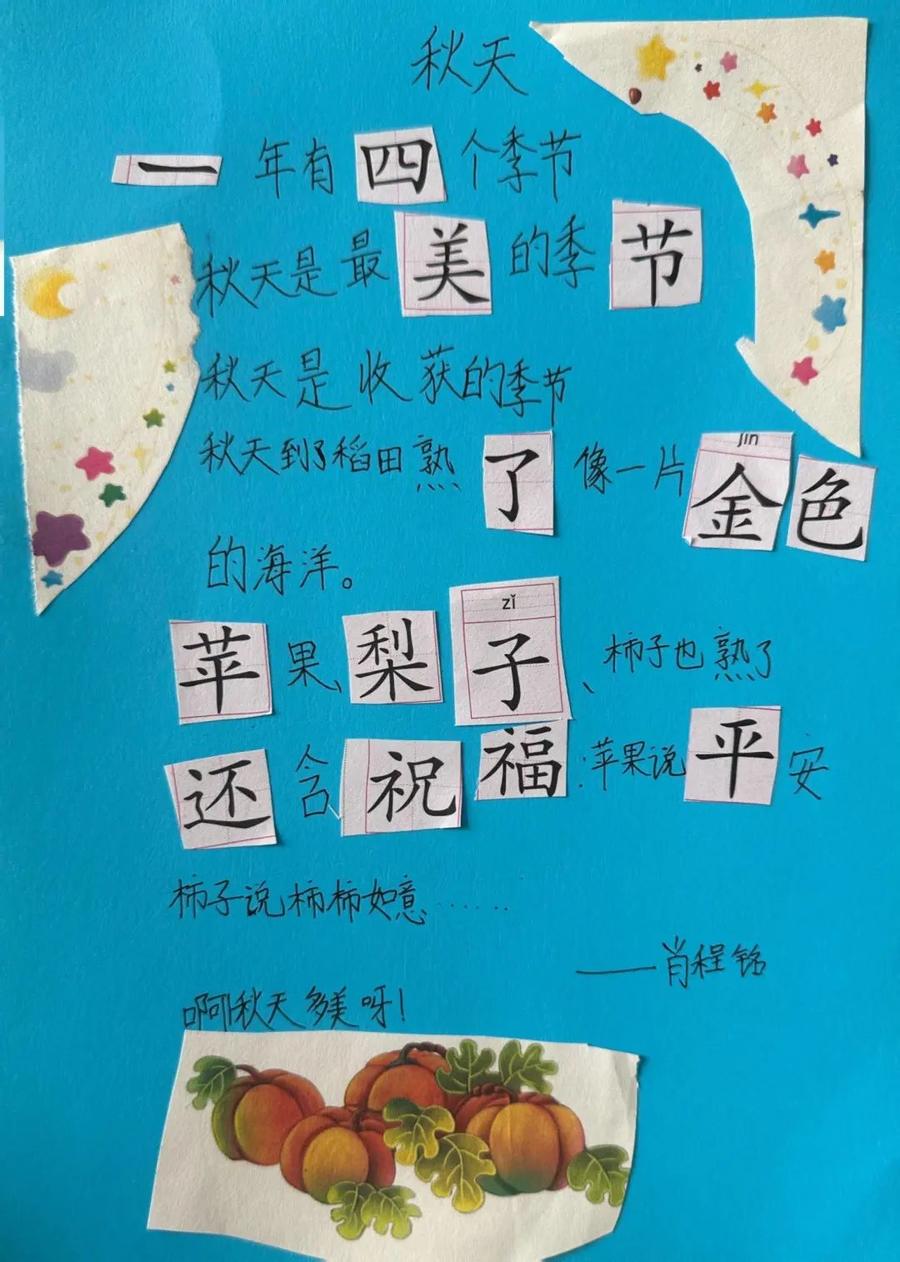 秋天
一年有四个季节
秋天是最美的季节
秋天是收获的季节
秋天到了稻田熟了像一片jīn金色
的海洋。
苹果、梨zǐ子、柿子也熟了
还含祝福:苹果说平安
柿子说柿柿如意……
——肖程铭
啊!秋天多美呀!